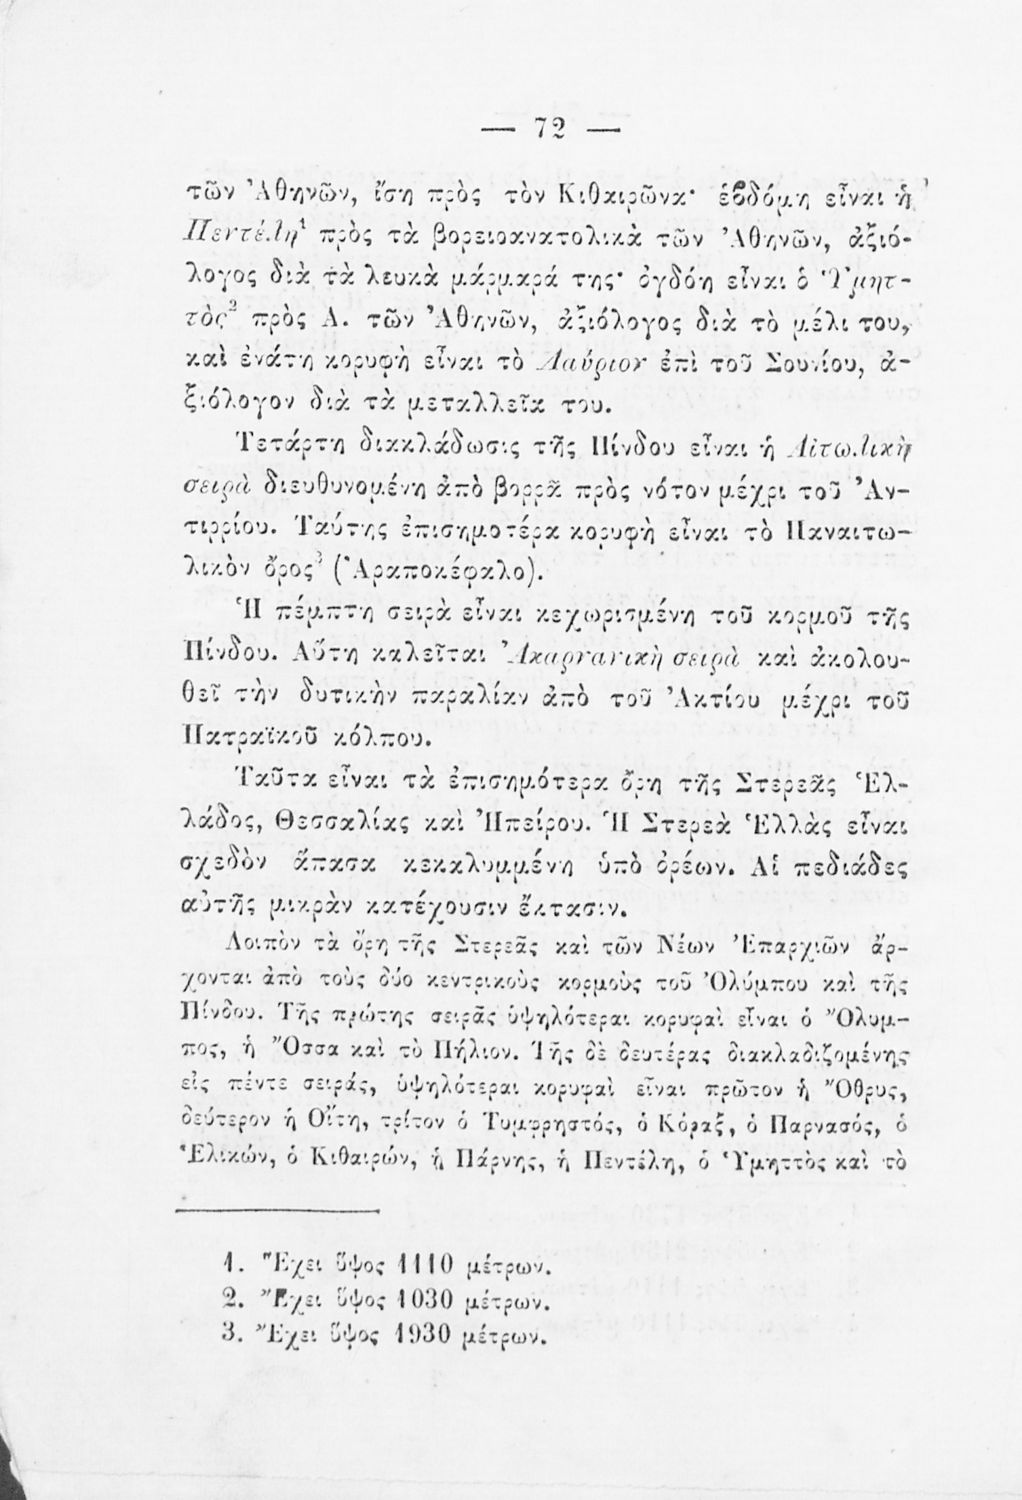 — 72 —
τῶν Ἀθηνῶν, ἴση πρὸς τὸν Κιθαιρῶνα· ἑβδόμη εἶναι ἡ
Πεντέλη¹ πρὸς τὰ βορειοανατολικὰ τῶν Ἀθηνῶν, ἀξιό-
λογος διὰ τὰ λευκὰ μάρμαρά της· ὀγδόη εἶναι ὁ Ὑμητ-
τὸς² πρὸς Α. τῶν Ἀθηνῶν, ἀξιόλογος διὰ τὸ μέλι του,
καὶ ἐνάτη κορυφὴ εἶναι τὸ Λαύριον ἐπὶ τοῦ Σουνίου, ἀ-
ξιόλογον διὰ τὰ μεταλλεῖα του.
Τετάρτη διακλάδωσις τῆς Πίνδου εἶναι ἡ Αἰτωλικὴ
σειρὰ διευθυνομένη ἀπὸ βορρᾶ πρὸς νότον μέχρι τοῦ Ἀν-
τιρρίου. Ταύτης ἐπισημοτέρα κορυφὴ εἶναι τὸ Παναιτω-
λικὸν ὄρος³ (Ἀραποκέφαλο).
Ἡ πέμπτη σειρὰ εἶναι κεχωρισμένη τοῦ κορμοῦ τῆς
Πίνδου. Αὕτη καλεῖται Ἀκαρνανικὴ σειρὰ καὶ ἀκολου-
θεῖ τὴν δυτικὴν παραλίαν ἀπὸ τοῦ Ἀκτίου μέχρι τοῦ
Πατραϊκοῦ κόλπου.
Ταῦτα εἶναι τὰ ἐπισημότερα ὄρη τῆς Στερεᾶς Ἑλ-
λάδος, Θεσσαλίας καὶ Ἠπείρου. Ἡ Στερεὰ Ἑλλὰς εἶναι
σχεδὸν ἅπασα κεκαλυμμένη ὑπὸ ὀρέων. Αἱ πεδιάδες
αὐτῆς μικρὰν κατέχουσιν ἔκτασιν.
Λοιπὸν τὰ ὄρη τῆς Στερεᾶς καὶ τῶν Νέων Ἐπαρχιῶν ἄρ-
χονται ἀπὸ τοὺς δύο κεντρικοὺς κορμοὺς τοῦ Ὀλύμπου καὶ τῆς
Πίνδου. Τῆς πρώτης σειρᾶς ὑψηλότεραι κορυφαὶ εἶναι ὁ Ὄλυμ-
πος, ἡ Ὄσσα καὶ τὸ Πήλιον. Τῆς δὲ δευτέρας διακλαδιζομένης
εἰς πέντε σειράς, ὑψηλότεραι κορυφαὶ εἶναι πρῶτον ἡ Ὄθρυς,
δεύτερον ἡ Οἴτη, τρίτον ὁ Τυμφρηστός, ὁ Κόραξ, ὁ Παρνασός, ὁ
Ἑλικών, ὁ Κιθαιρών, ἡ Πάρνης, ἡ Πεντέλη, ὁ Ὑμηττὸς καὶ τὸ
1. Ἔχει ὕψος 1110 μέτρων.
2. Ἔχει ὕψος 1030 μέτρων.
3. Ἔχει ὕψος 1930 μέτρων.